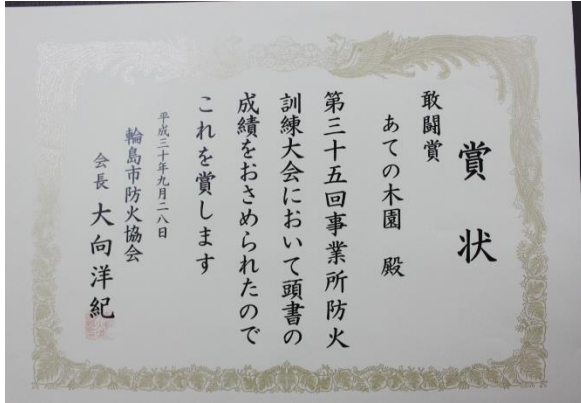 賞状
敢闘賞
あての木園 殿
第三十五回事業所防火
訓練大会において頭書の
成績をおさめられたので
これを賞します
平成三十年九月二八日
輪島市防火協会
会長 大向洋紀